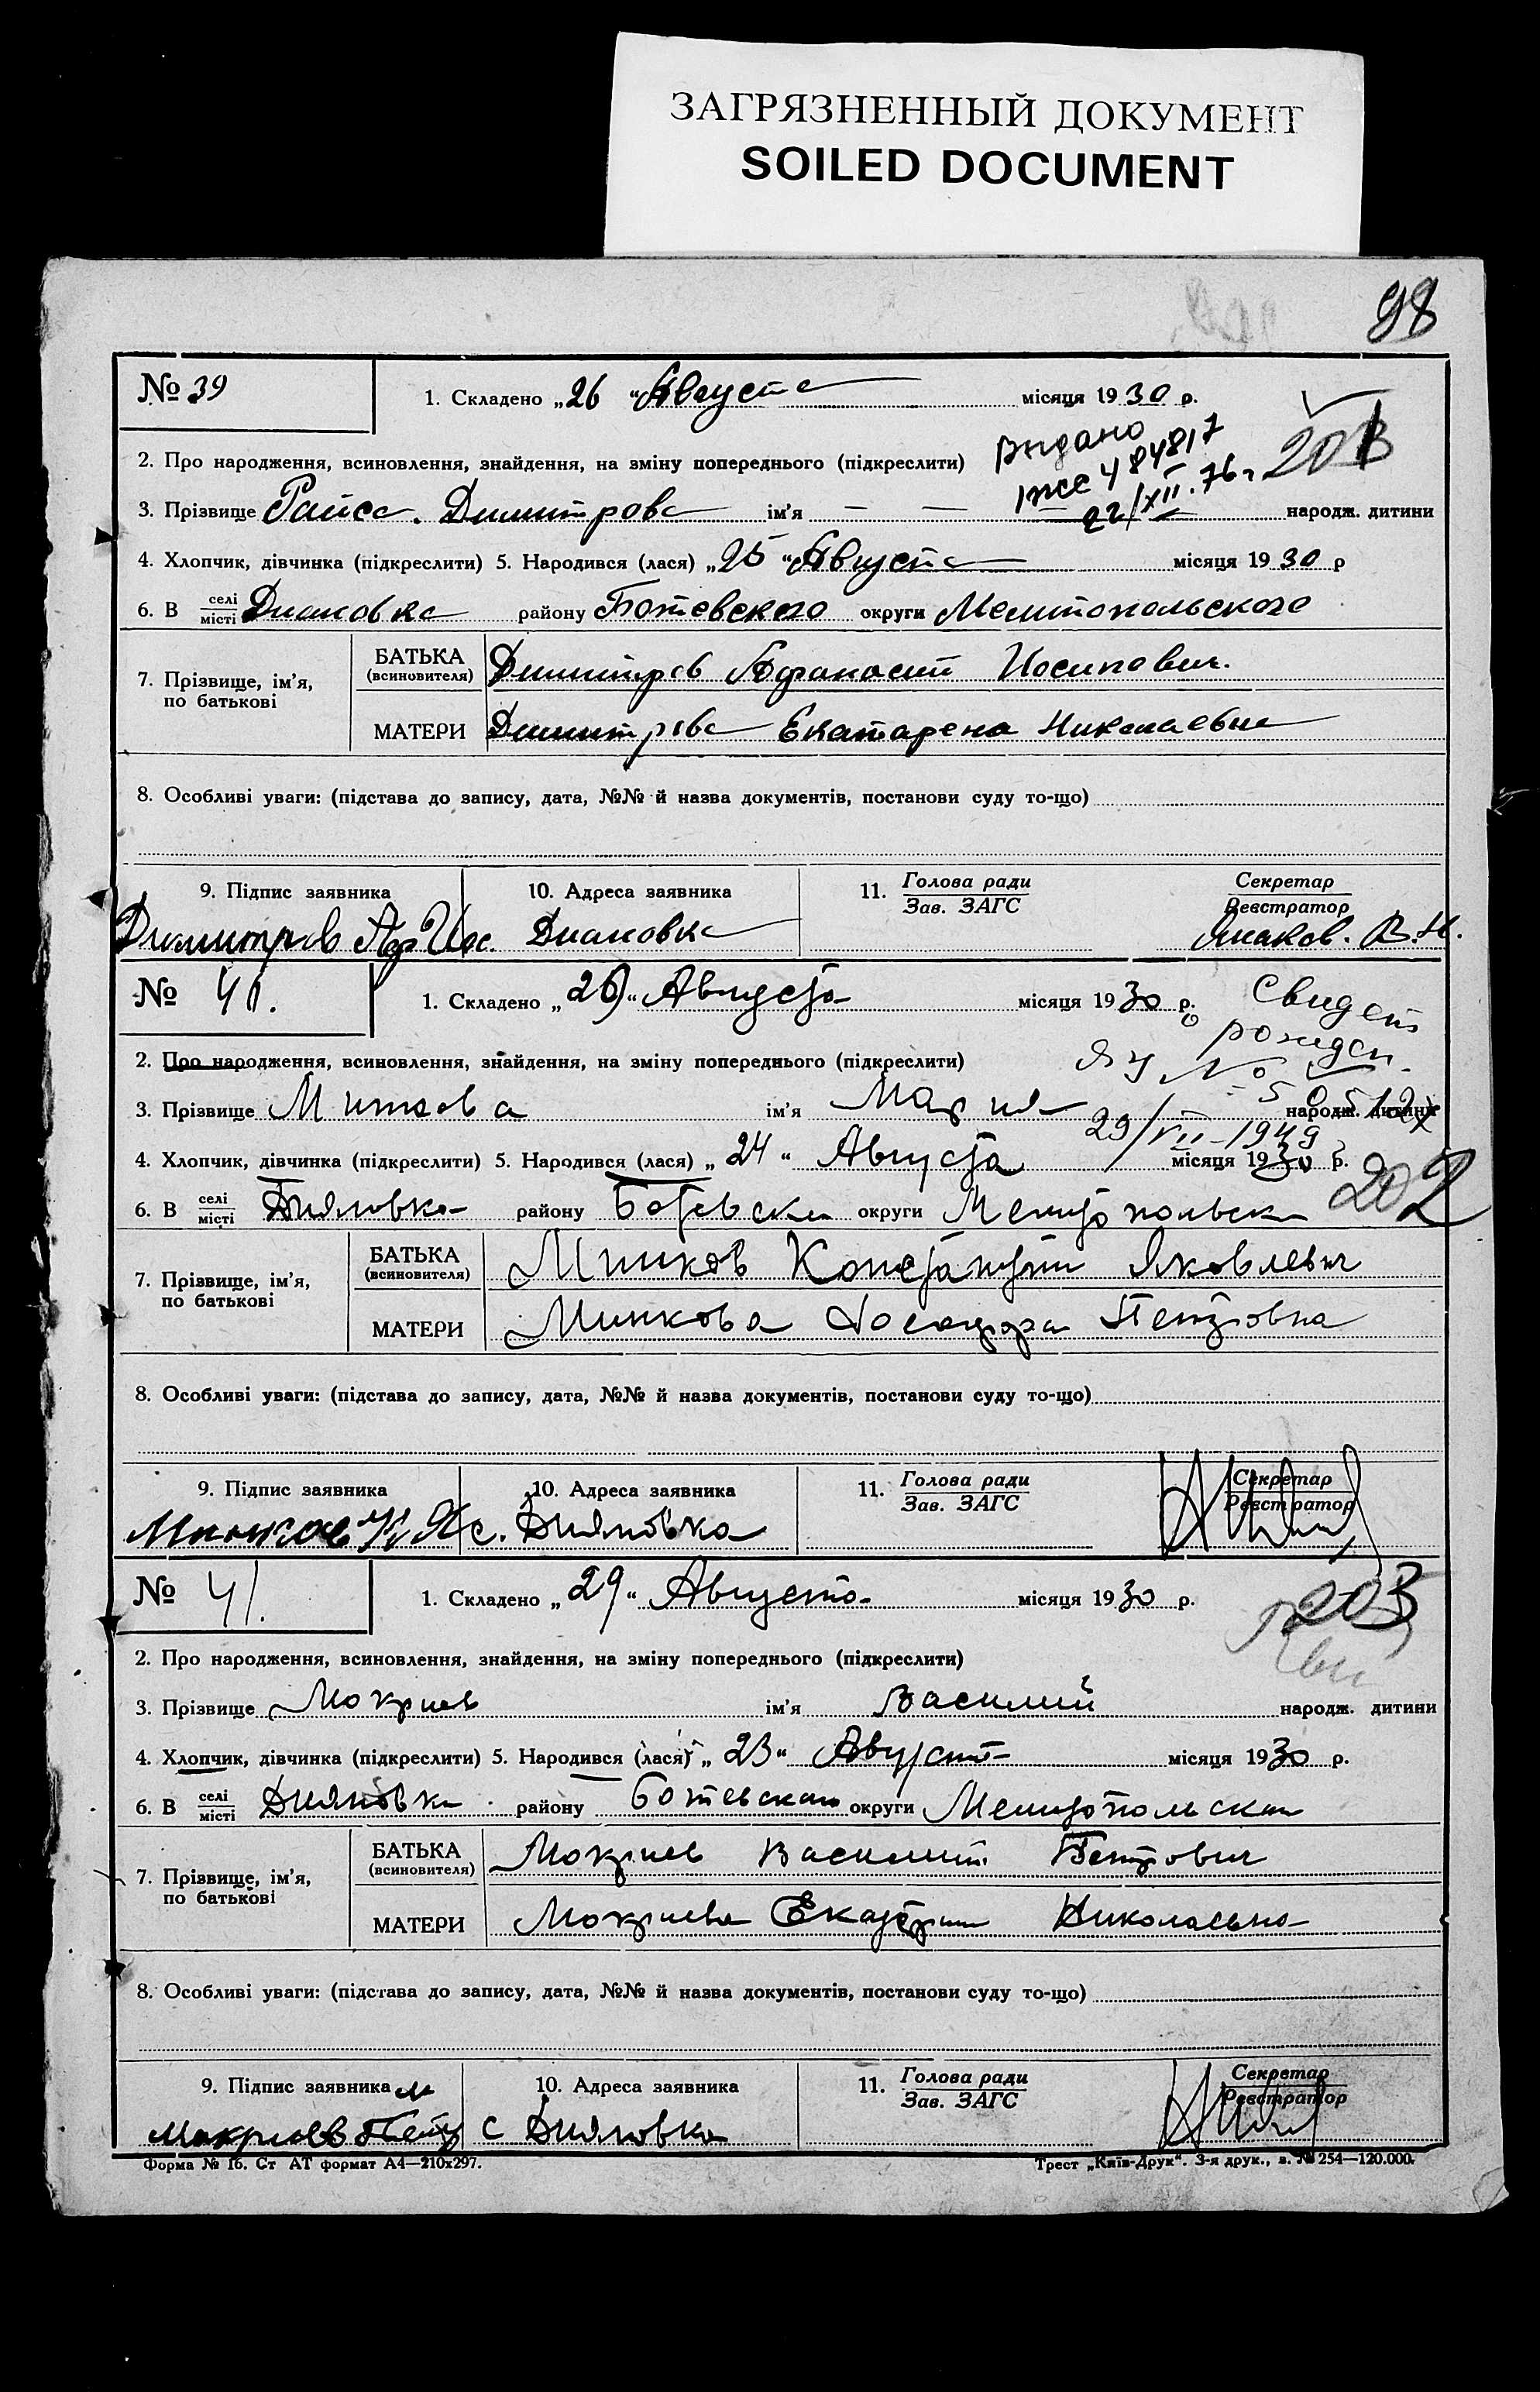 ЗАГРЯЗНЕННЫЙ ДОКУМЕНТ
SOILED DOCUMENT
98
№ 39
1. Складено „26“ Августа місяця 1930 р.
2. Про народження, всиновлення, знайдення, на зміну попереднього (підкреслити)
Видано
484817
22/XII.76г
3. Прізвище Раиса. Димитрова ім'я — — народж. дитини
4. Хлопчик, дівчинка (підкреслити) 5. Народився (лася) „25“ Августа місяця 1930 р
6. В селі місті Диановка району Ботевского округи Мелитопольского
7. Прізвище, ім'я, по батькові
БАТЬКА (всиновителя) Димитров Афанасий Иосипович.
МАТЕРИ Димитрова Екатарена Николаевна
8. Особливі уваги: (підстава до запису, дата, №№ й назва документів, постанови суду то-що)
9. Підпис заявника 10. Адреса заявника 11. Голова ради Зав. ЗАГС Секретар Реєстратор
Димитров Аф Иос. Диановка
№ 40.
1. Складено „26“ Августа місяця 1930 р.
Свидет
о рожден.
2. Про народження, всиновлення, знайдення, на зміну попереднього (підкреслити)
ЯЧ №
3. Прізвище Минкова ім'я Мария народж. дитини
29/VII-1949
4. Хлопчик, дівчинка (підкреслити) 5. Народився (лася) „24“ Августа місяця 1930 р.
202
6. В селі місті Дияновка району Ботевски округи Мелитопольски
7. Прізвище, ім'я, по батькові
БАТЬКА (всиновителя) Минков Константин Яковлевич
МАТЕРИ Минкова Петровна
8. Особливі уваги: (підстава до запису, дата, №№ й назва документів, постанови суду то-що)
9. Підпис заявника 10. Адреса заявника 11. Голова ради Зав. ЗАГС Секретар Реєстратор
Минков К Я с. Дияновка
№ 41.
1. Складено „29“ Августа місяця 1930 р.
203
2. Про народження, всиновлення, знайдення, на зміну попереднього (підкреслити)
3. Прізвище Мокриев ім'я Василий народж. дитини
4. Хлопчик, дівчинка (підкреслити) 5. Народився (лася) „23“ Август місяця 1930 р.
6. В селі місті Дияновка району Ботевскаго округи Мелитопольскаго
7. Прізвище, ім'я, по батькові
БАТЬКА (всиновителя) Мокриев Василий Петрович
МАТЕРИ Мокриева Екатерина Николаевна
8. Особливі уваги: (підстава до запису, дата, №№ й назва документів, постанови суду то-що)
9. Підпис заявника 10. Адреса заявника 11. Голова ради Зав. ЗАГС Секретар Реєстратор
Мокриев с Дияновка
Форма № 16. Ст АТ формат А4—210х297.
Трест „Київ-Друк“. 3-я друк., з. № 254—120.000.